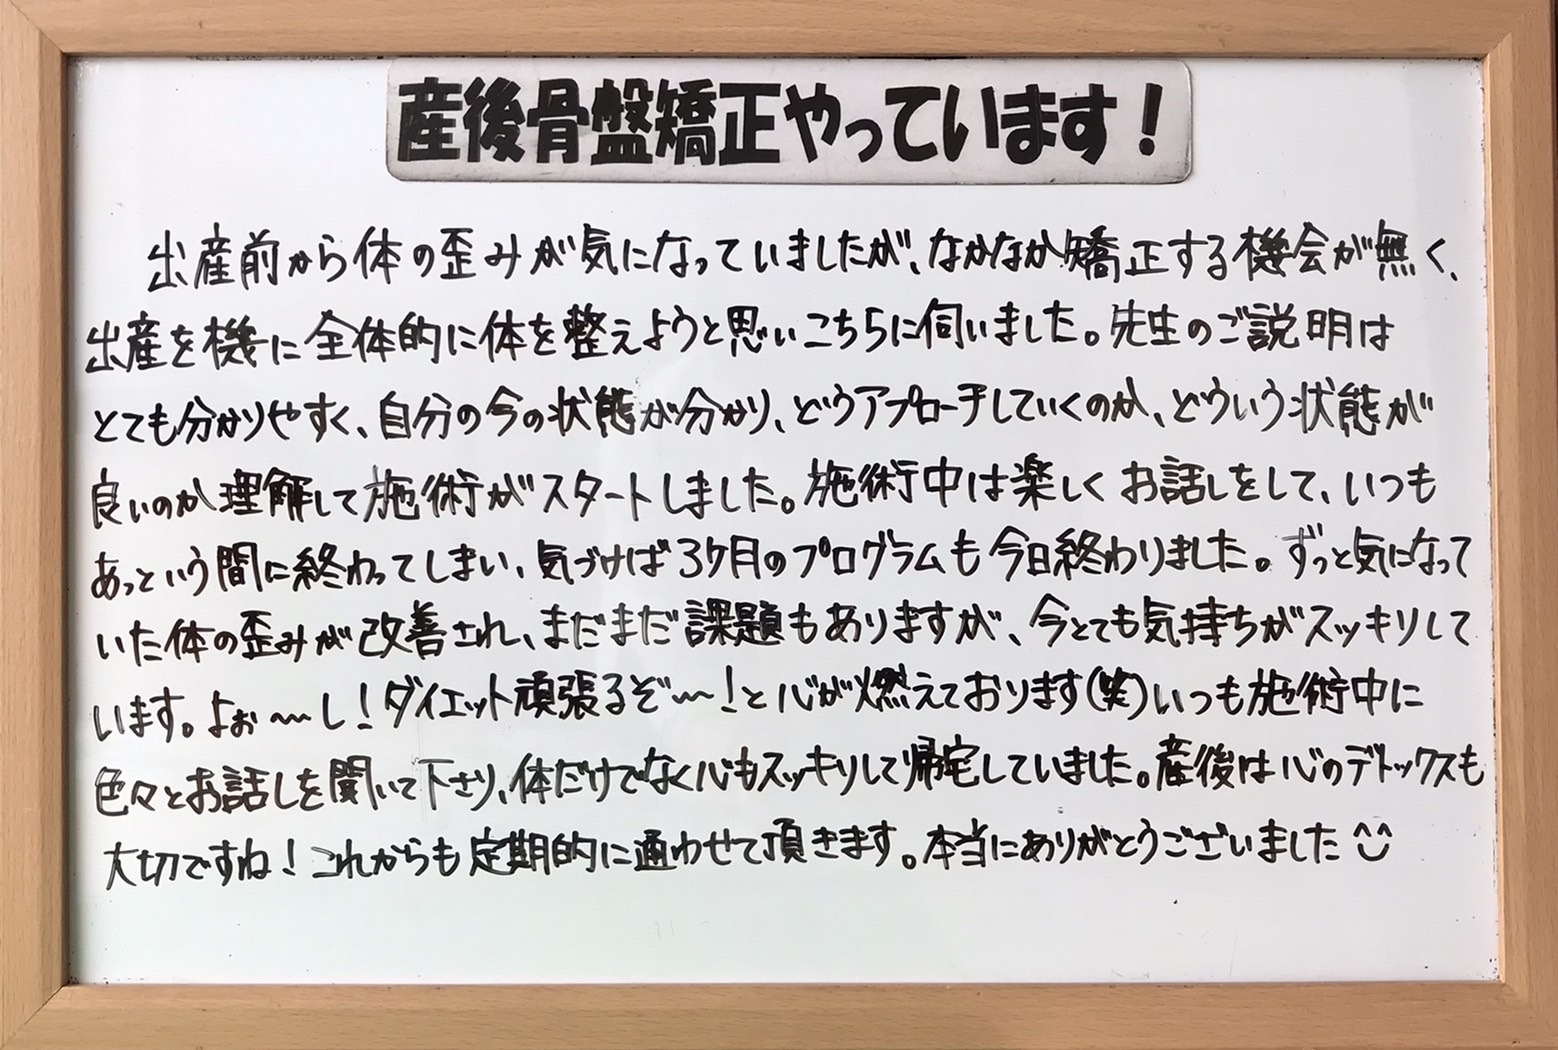 産後骨盤矯正やっています！
出産前から体の歪みが気になっていましたが、なかなか矯正する機会が無く、
出産を機に全体的に体を整えようと思いこちらに伺いました。先生のご説明は
とても分かりやすく、自分の今の状態が分かり、どうアプローチしていくのか、どういう状態が
良いのか理解して施術がスタートしました。施術中は楽しくお話しをして、いつも
あっという間に終わってしまい、気づけば3ヶ月のプログラムも今日終わりました。ずっと気になって
いた体の歪みが改善され、まだまだ課題もありますが、今とても気持ちがスッキリして
います。よぉ〜し！ダイエット頑張るぞ〜！と心が燃えております(笑)いつも施術中に
色々とお話しを聞いて下さり、体だけでなく心もスッキリして帰宅していました。産後は心のデトックスも
大切ですね！これからも定期的に通わせて頂きます。本当にありがとうございました^^